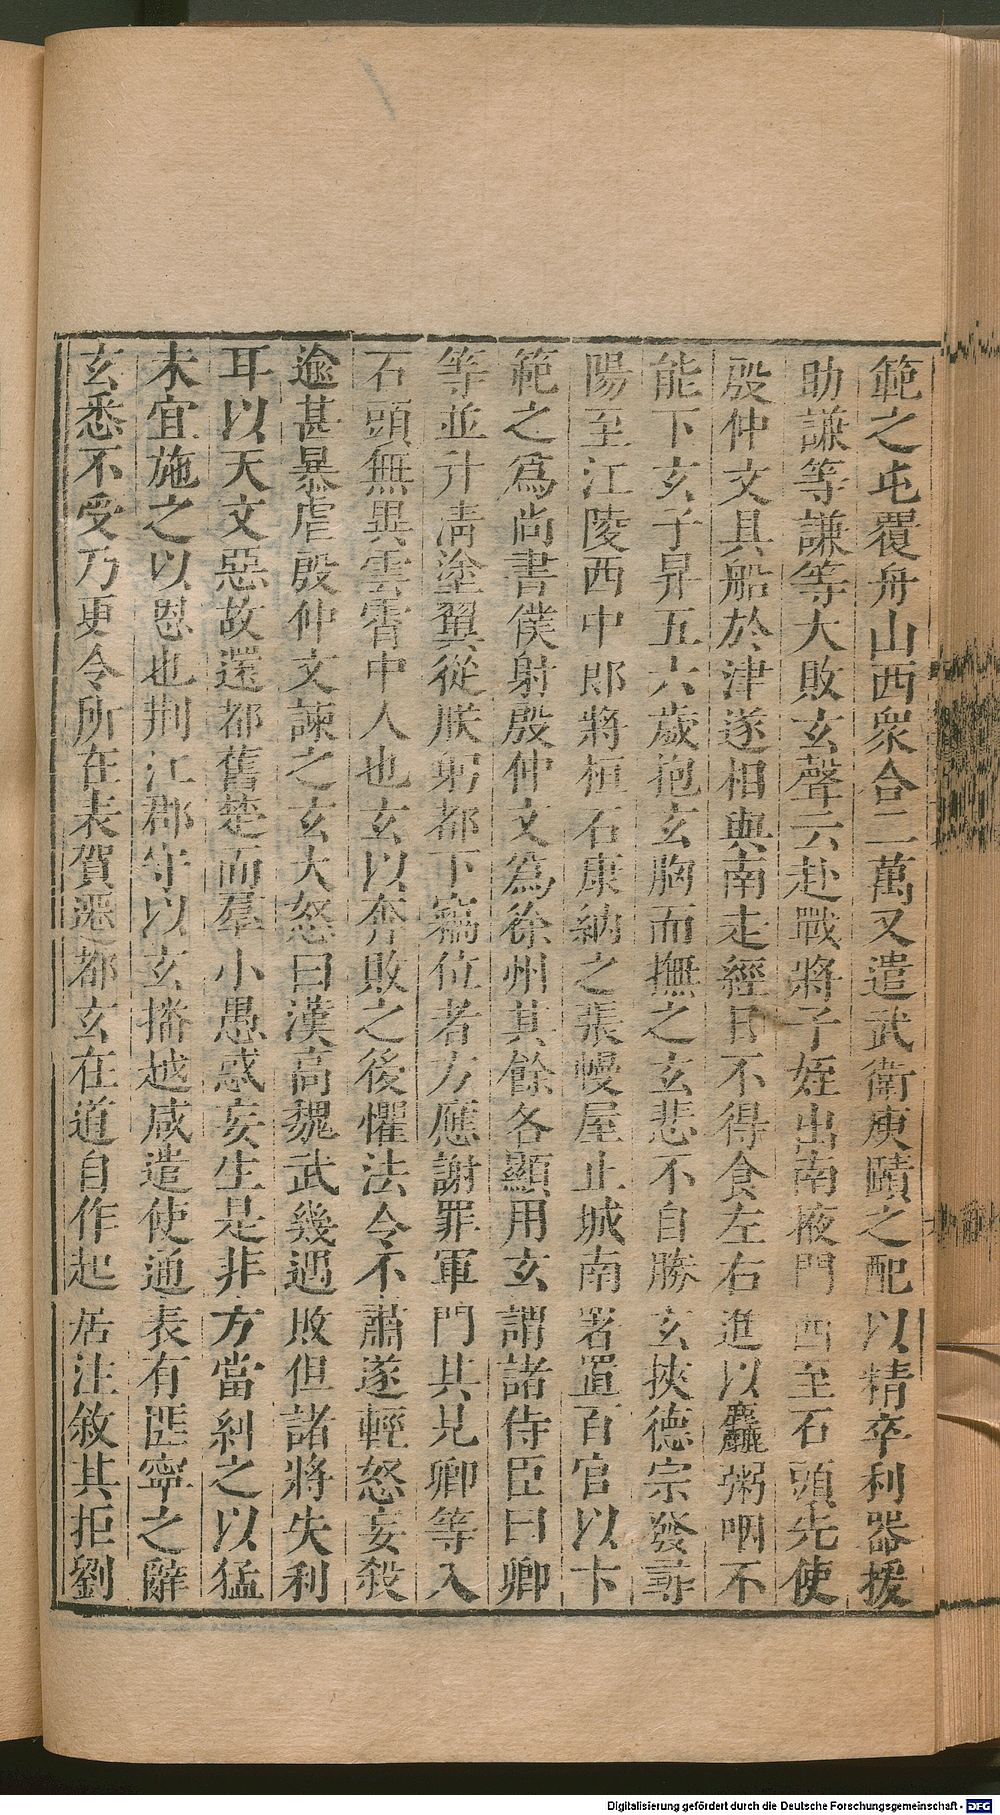 範之屯覆舟山西衆合二萬又遣武衛庾賾之配以精卒利器援
助謙等謙等大敗玄聲云赴戰將子姪出南掖門西至石頭先使
殷仲文具船於津遂相與南走經日不得食左右進以麤粥咽不
能下玄子昇五六歲抱玄胸而撫之玄悲不自勝玄挾德宗發尋
陽至江陵西中郎將桓石康納之張幔屋止城南署置百官以卞
範之爲尚書僕射殷仲文爲徐州其餘各顯用玄謂諸侍臣曰卿
等並升清塗翼從朕躬都下竊位者方應謝罪軍門其見卿等入
石頭無異雲霄中人也玄以奔敗之後懼法令不肅遂輕怒妄殺
逾甚暴虐殷仲文諫之玄大怒曰漢高魏武幾遇敗但諸將失利
耳以天文惡故還都舊楚而羣小愚惑妄生是非方當糾之以猛
未宜施之以恩也荆江郡守以玄播越咸遣使通表有匪寧之辭
玄悉不受乃更令所在表賀遷都玄在道自作起居注敘其拒劉
Digitalisierung gefördert durch die Deutsche Forschungsgemeinschaft - DFG